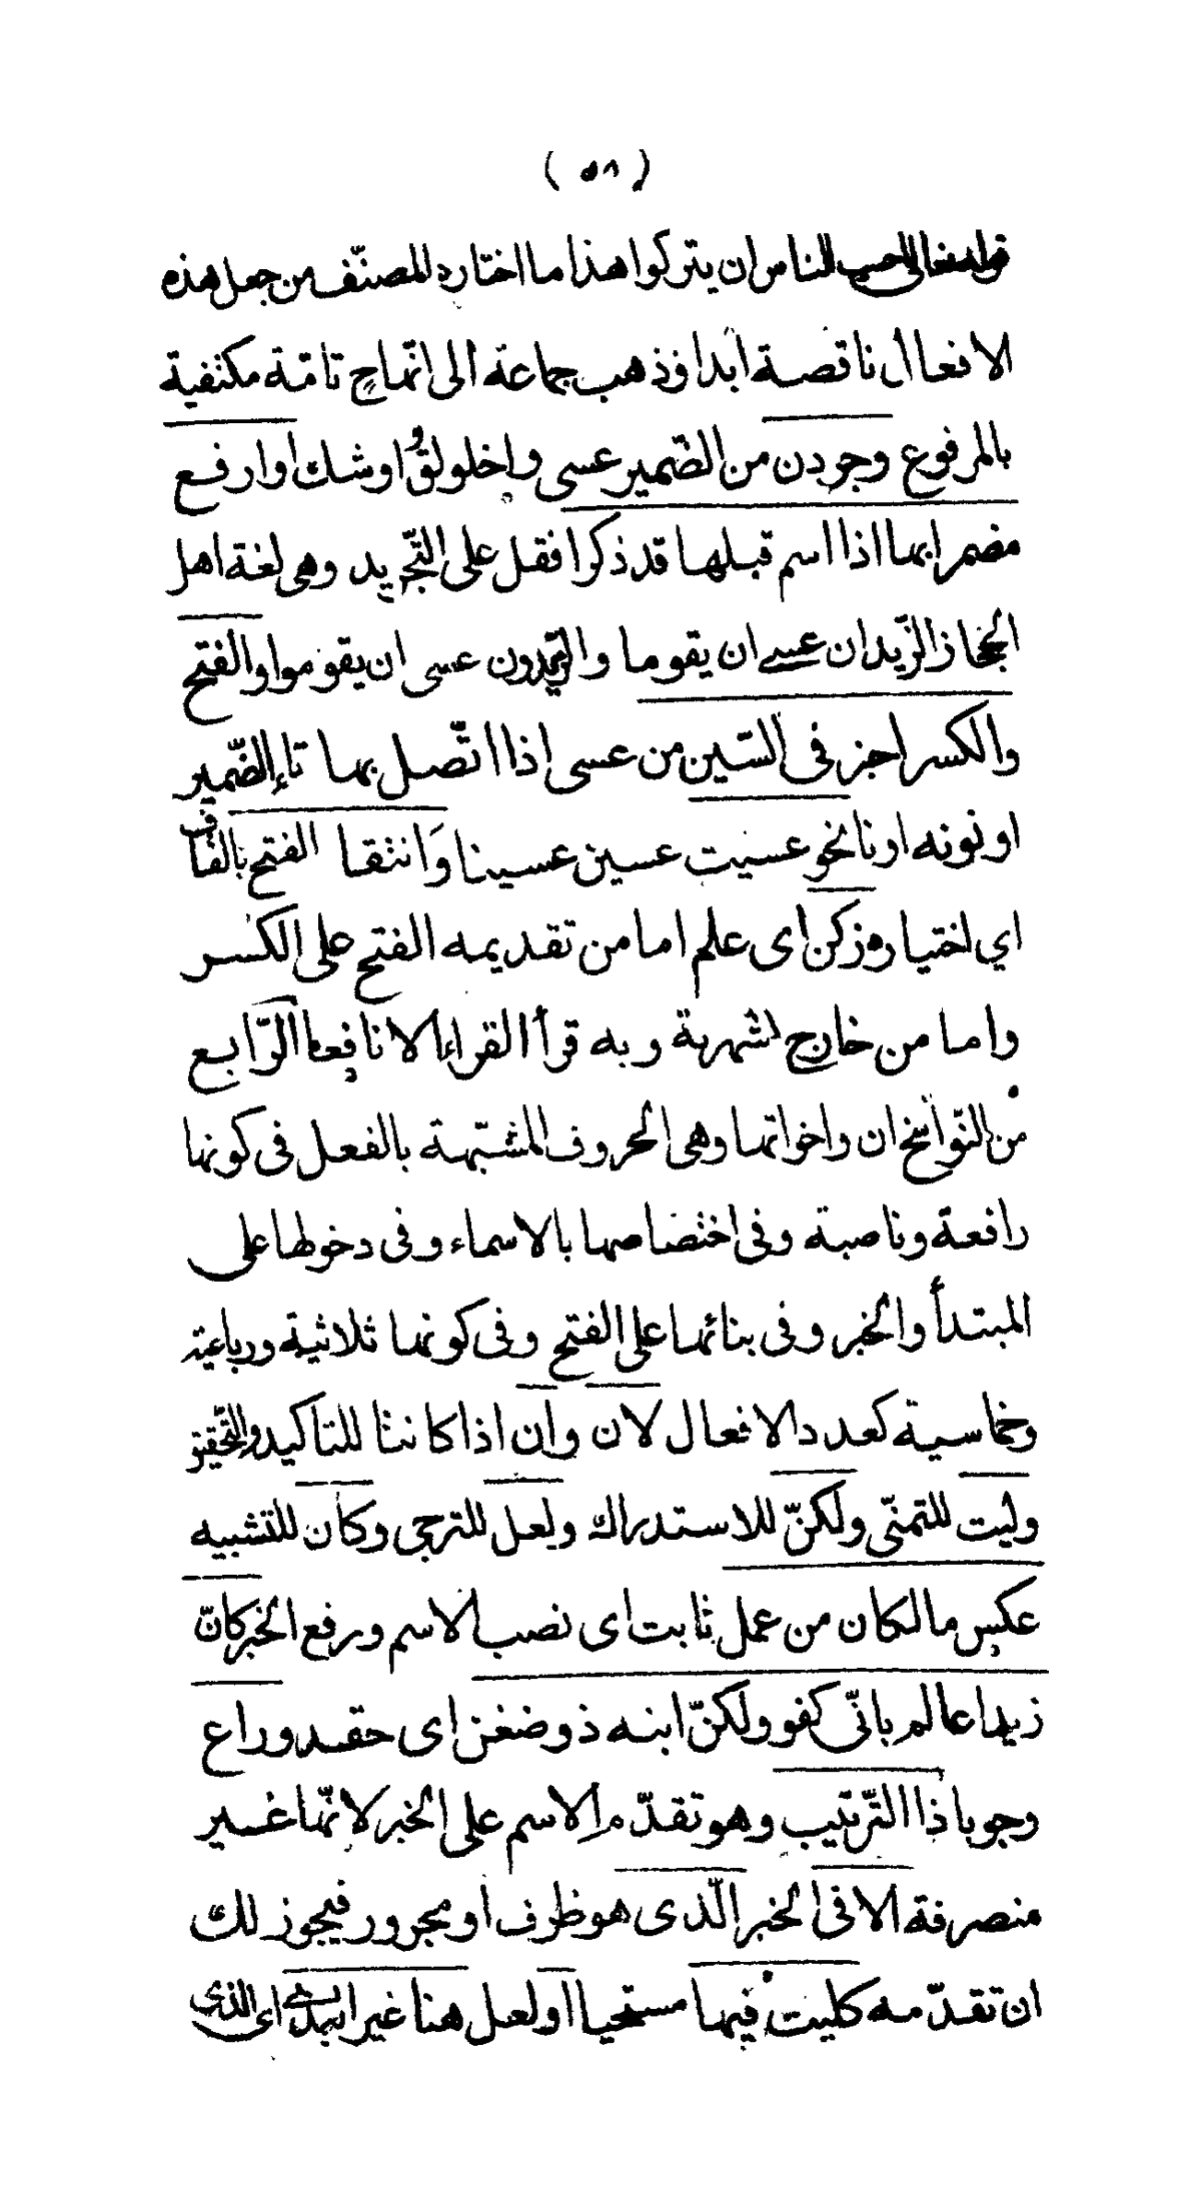 ( ٥٨ )
قوله تعالى احسب الناس ان يتركوا هذا ما اختاره المصنّف من جعل هذه
الافعال ناقصة ابدا وذهب جماعة الى انّها ح تامّة مكتفية
بالمرفوع وجردن من الضّمير عسى واخلولقُ اوشك اوارفع
مضمرا بها اذا اسم قبلها قد ذكرا فقل على التّجريد وهى لغة اهل
الحجاز الزّيدان عسى ان يقوما والزّيدون عسى ان يقوموا والفتح
والكسر اجز فى السّين من عسى اذا اتّصل بها تاء الضّمير
او نونه او نا نحو عسيت عسين عسينا وَانتقا الفتح بالقاف
اي اختياره زكن اى علم اما من تقديمه الفتح على الكسر
واما من خارج لشهرتة وبه قرأ القراء الا نافعا الرّابع
من النّواسخ ان واخواتها وهى الحروف المشبّهة بالفعل فى كونها
رافعة وناصبة وفى اختصاصها بالاسماء وفى دخولها على
المبتدأ والخبر وفى بنائها على الفتح وفى كونها ثلاثية ورباعية
وخماسية كعدد الافعال لان وان اذا كانتا للتاكيد والتّحقيق
وليت للتمنّى ولكنّ للاستدراك ولعل للترجى وكان للتشبيه
عكس ما لكان من عمل ثابت اى نصب الاسم ورفع الخبر كانّ
زيدا عالم بانّى كفو ولكنّ ابنه ذو ضغن اى حقد وراع
وجوبا ذا التّرتيب وهو تقدّم الاسم على الخبر لانّها غير
منصرفة الا فى الخبر الّذى هو ظرف او مجرور فيجوز لك
ان تقدّمه كليت فيها مستحيا او لعل هنا غير البذى اى الذى